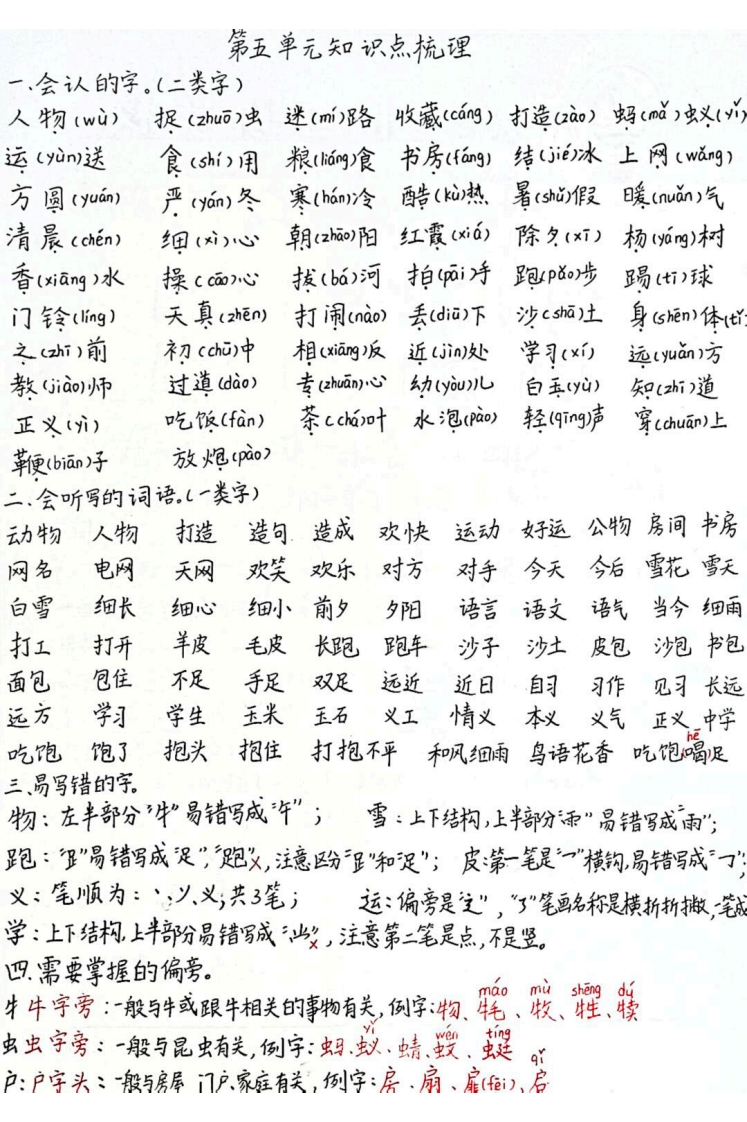 第五单元知识点梳理
一、会认的字。(二类字)
人物(wù) 捉(zhuō)虫 迷(mí)路 收藏(cáng) 打造(zào) 蚂(mǎ)蚁(yǐ)
运(yùn)送 食(shí)用 粮(liáng)食 书房(fáng) 结(jié)冰 上网(wǎng)
方圆(yuán) 严(yán)冬 寒(hán)冷 酷(kù)热 暑(shǔ)假 暖(nuǎn)气
清晨(chén) 细(xì)心 朝(zhāo)阳 红霞(xiá) 除夕(xī) 杨(yáng)树
香(xiāng)水 操(cāo)心 拔(bá)河 拍(pāi)手 跑(pǎo)步 踢(tī)球
门铃(líng) 天真(zhēn) 打闹(nào) 丢(diū)下 沙(shā)土 身(shēn)体(tǐ
之(zhī)前 初(chū)中 相(xiāng)反 近(jìn)处 学习(xí) 远(yuǎn)方
教(jiào)师 过道(dào) 专(zhuān)心 幼(yòu)儿 白玉(yù) 知(zhī)道
正义(yì) 吃饭(fàn) 茶(chá)叶 水泡(pào) 轻(qīng)声 穿(chuān)上
鞭(biān)子 放炮(pào)
二、会听写的词语。(一类字)
动物 人物 打造 造句 造成 欢快 运动 好运 公物 房间 书房
网名 电网 天网 欢笑 欢乐 对方 对手 今天 今后 雪花 雪天
白雪 细长 细心 细小 前夕 夕阳 语言 语文 语气 当今 细雨
打工 打开 羊皮 毛皮 长跑 跑车 沙子 沙土 皮包 沙包 书包
面包 包住 不足 手足 双足 远近 近日 自习 习作 见习 长远
远方 学习 学生 玉米 玉石 义工 情义 本义 义气 正义 中学
吃饱 饱了 抱头 抱住 打抱不平 和风细雨 鸟语花香 吃饱喝(hē)足
三、易写错的字。
物：左半部分"牜"易错写成"午"； 雪：上下结构,上半部分"⻗"易错写成"雨"；
跑："⻊"易错写成"足","跑"x,注意区分"⻊"和"足"； 皮:第一笔是"乛"横钩,易错写成"㇆"；
义：笔顺为：丶、丷、义;共3笔； 运:偏旁是"辶","㇋"笔画名称是横折折撇,一笔成
学：上下结构,上半部分易错写成"⺌"x,注意第二笔是点,不是竖。
四、需要掌握的偏旁。
牜牛字旁：一般与牛或跟牛相关的事物有关,例字:物、牦(máo)、牧(mù)、牲(shēng)、犊(dú)
虫虫字旁：一般与昆虫有关,例字:蚂、蚁(yǐ)、蜻、蚊(wén)、蜓(tíng)
户:户字头：一般与房屋 门户、家庭有关,例字:房、扇、扉(fēi)、启(qǐ)